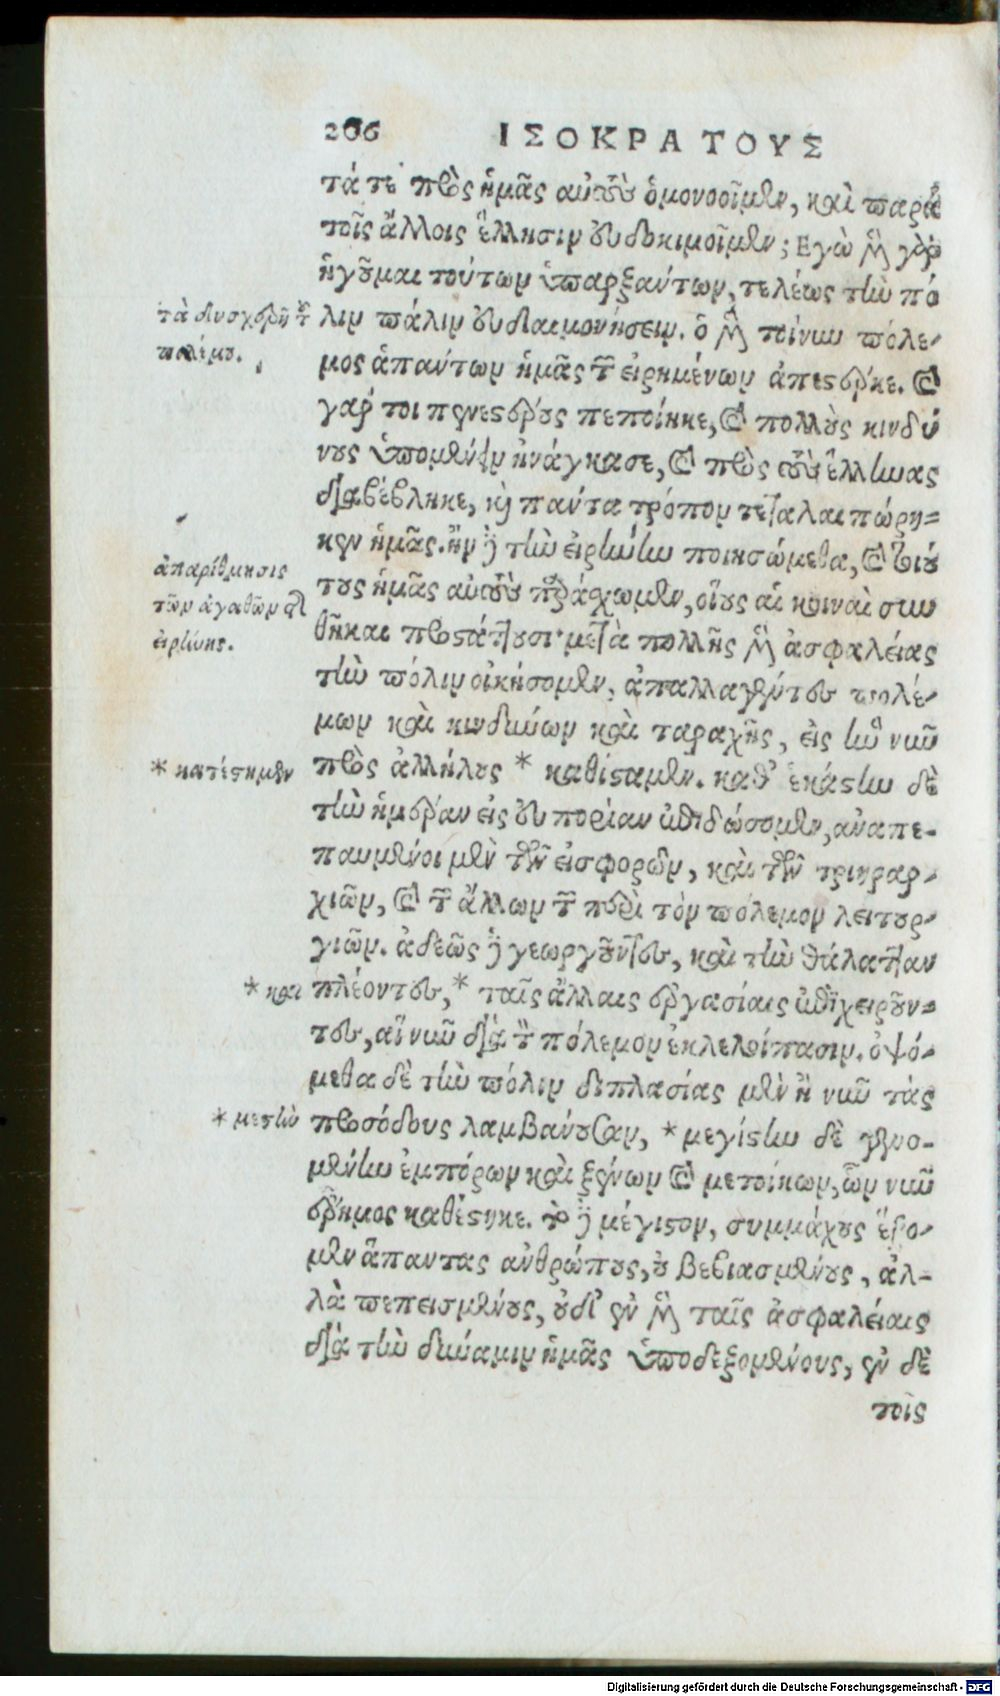 206 ΙΣΟΚΡΑΤΟΥΣ
τά τε πρὸς ἡμᾶς αὐτοὺς ὁμονοοῖμεν, καὶ παρὰ
τοῖς ἄλλοις ἕλλησιν εὐδοκιμοῖμεν; Εγὼ μὲν γὰρ
ἡγοῦμαι τούτων ὑπαρξάντων, τελέως τὴν πό
λιν πάλιν εὐδαιμονήσειν. ὁ μὲν τοίνυν πόλε-
μος ἁπάντων ἡμᾶς τῶν εἰρημένων ἀπεστέρηκε. καὶ
γάρ τοι πενεστέρους πεποίηκε, καὶ πολλοὺς κινδύ
νους ὑπομένειν ἠνάγκασε, καὶ πρὸς τοὺς ἕλληνας
διαβέβληκε, καὶ πάντα τρόπον τεταλαιπώρη=
κεν ἡμᾶς. ἢν δὲ τὴν εἰρήνην ποιησώμεθα, καὶ τοιού
τους ἡμᾶς αὐτοὺς παράσχωμεν, οἵους αἱ κοιναὶ συν
θῆκαι προστάττουσι· μετὰ πολλῆς μὲν ἀσφαλείας
τὴν πόλιν οἰκήσομεν, ἀπαλλαγέντες πολέ-
μων καὶ κινδύνων καὶ ταραχῆς, εἰς ἣν νῦν
πρὸς ἀλλήλους * καθίσταμεν. καθ᾽ ἑκάστην δὲ
τὴν ἡμέραν εἰς εὐπορίαν ἐπιδώσομεν, ἀναπε-
παυμένοι μὲν τῶν εἰσφορῶν, καὶ τῶν τριηραρ-
χιῶν, καὶ τῶν ἄλλων τῶν περὶ τὸν πόλεμον λειτουρ-
γιῶν. ἀδεῶς δὲ γεωργοῦντες, καὶ τὴν θάλατταν
πλέοντες, * ταῖς ἄλλαις ἐργασίαις ἐπιχειροῦν=
τες, αἳ νῦν διὰ τὸν πόλεμον ἐκλελοίπασιν. ὀψό-
μεθα δὲ τὴν πόλιν διπλασίας μὲν ἢ νῦν τὰς
προσόδους λαμβάνουσαν, * μεγίστην δὲ γενο-
μένην ἐμπόρων καὶ ξένων καὶ μετοίκων, ὧν νῦν
ἔρημος καθέστηκε. τὸ δὲ μέγιστον, συμμάχους ἕξο-
μεν ἅπαντας ἀνθρώπους, οὐ βεβιασμένους, ἀλ-
λὰ πεπεισμένους, οὐδ᾽ ἐν μὲν ταῖς ἀσφαλείαις
διὰ τὴν δύναμιν ἡμᾶς ὑποδεξομένους, ἐν δὲ
τοῖς
τὰ δυσχερῆ τοῦ
πολέμου.
ἀπαρίθμησις
τῶν ἀγαθῶν τῆς
εἰρήνης.
* κατέστημεν
* καὶ
* μεστὴν
Digitalisierung gefördert durch die Deutsche Forschungsgemeinschaft - DFG